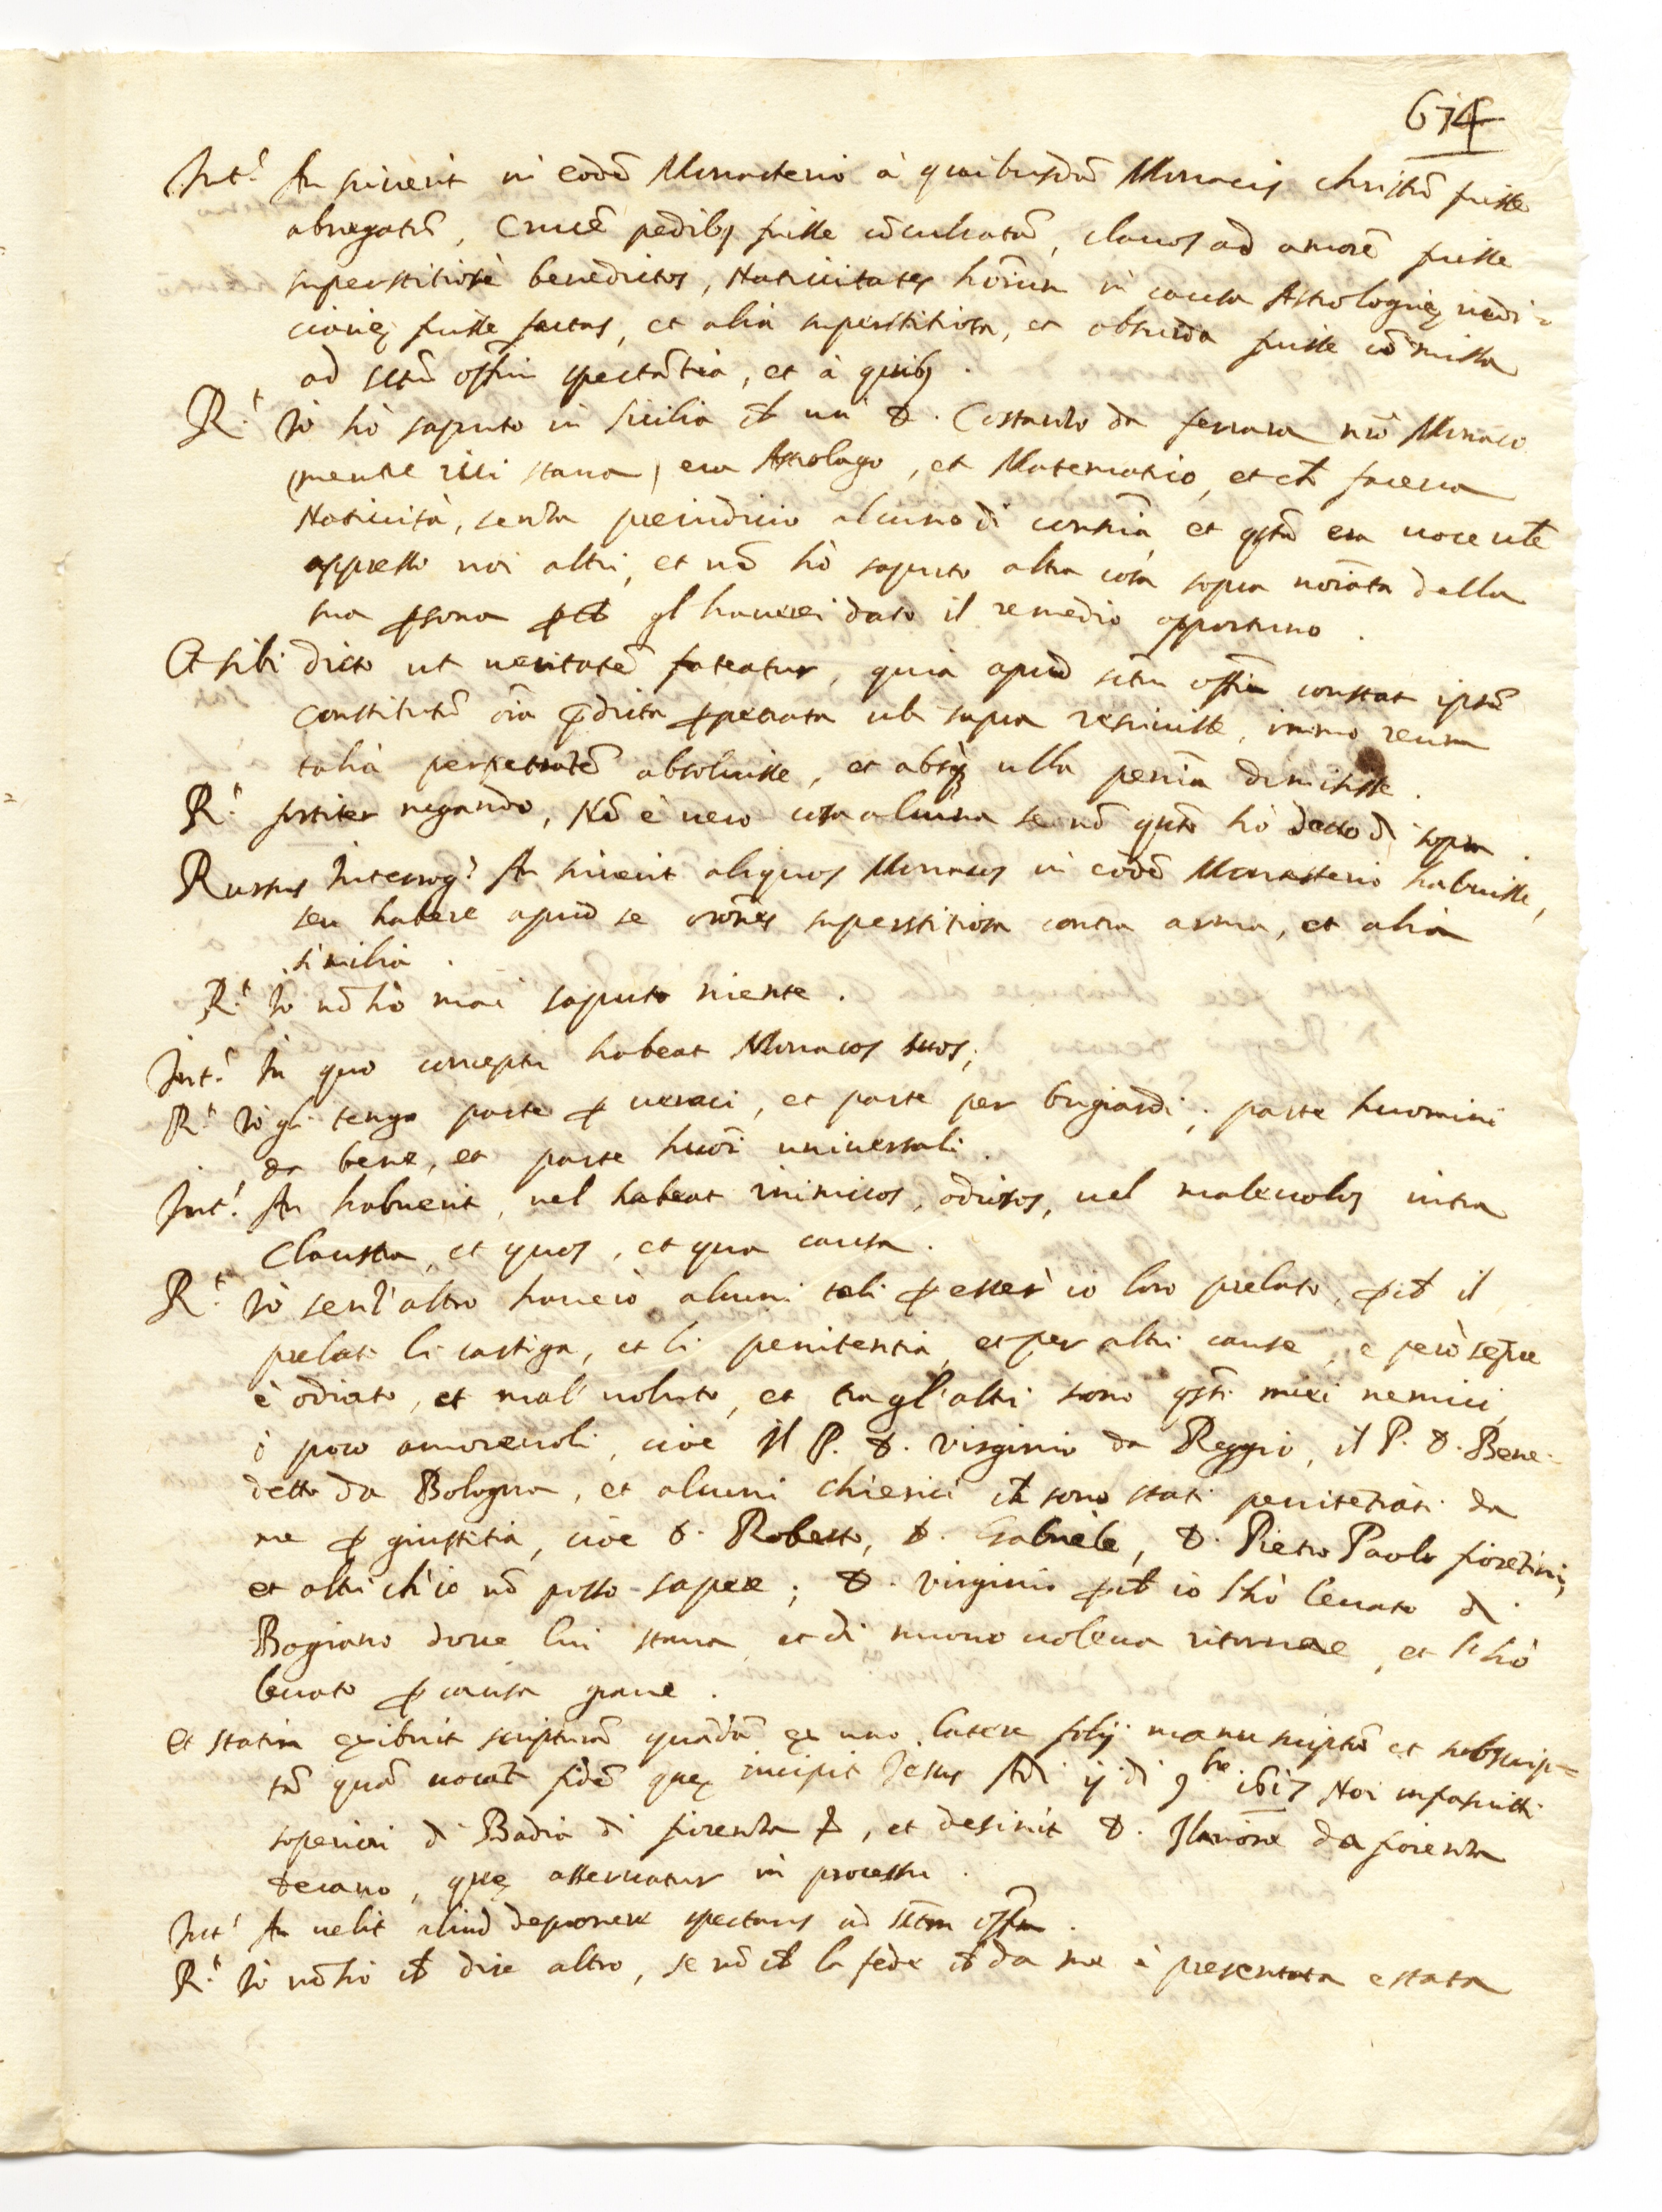 674
Int.s An sciverit in eodē Monasterio à quibusdā Monacis christū fuisse
abnegatū, Crucē pedibȝ fuisse cōculcatā, clauos ad amorē fuisse
superstitiosè benedictos, Natiuitates hoīum in causa Astrologię iudi=
ciarię fuisse factas, et alia superstitiosa, et absurda fuisse cōmissa
ad sctū offm spectātia, et à quibȝ.
R.t Io hò saputo in Sicilia ch un' D. Costanzo da ferrara nrō Monaco
(mentre iui staua) era Astrologo, et Matematico, et ch faceua
Natiuità, senza preiudicio alcuno di consñia, et qsta era uoce ...
appresso noi altri, et nō hò saputo altra cosa sopra noīata della
sua psona pch gl'hauerei dato il remedio opportuno.
Et sibi dicto ut ueritatē fateatur, quia apud sctm offm constat ipsū
Constitutū oīa pdicta ppetrata ubi supra resciuisse, immo reum
talia perpetratē absoluisse, et absqȝ ulla penīa dimisisse.
R.t fortiter negando, Nō è uero cosa alcuna se nō qsto hò detto di sopra.
Rursus Interrog.s An sciuerit aliquos Monacos in eodē Monasterio habuisse,
seu habere apud se orōnes superstitiosas contra arma, et alia
similia.
R.t Io nō hò mai saputo niente.
Int.s In quo conceptu habeat Monacos suos;
R.t Io gli tengo parte p ueraci, et parte per bugiardi; parte huomini
da bene, et parte huoī uniuersali.
Int.s An habuerit, uel habeat inimicos, odiosos, uel maleuolos intra
Claustra, et quos, et qua causa.
R.t Io senz'altro hauerò alcuni tali p esser io loro prelato, pch il
prelato li castiga, et li penitentia, et per altri cause, e però sēpre
è odiato, et mal' uoluto, et tra gl'altri sono qsti miei nemici
ò poco amoreuoli, cioè Il P. D. Virginio da Reggio, il P. D. Bene-
detto da Bologna, et alcuni chierici ch sono stati penitētiati da
me p giustitia, cioè D. Roberto, D. Gabriele, D. Pietro Paolo fiorētini,
et altri ch'io nō posso sapere; D. Virginio pch io l'hò leuato di
Bogiano doue lui staua et di nuouo uoleua ritornare, et l'hò
leuato p causa graue.
Et statim exibuit scripturā quādā ex uno latere folij manu scriptā et subscrip=
tā quā uocat fidē quę incipit Jesus Adi ij di 9bre 1617 Noi infrascritti
superiori di Badia di fiorenza &, et desinit D. Ilarione da fiorenza
decano, quę asseruatur in processu.
Int.s An uelit aliud deponere spectans ad sctm offm.
R.t Io nō hò ch dire altro, se nō ch la fede ch da me è presentata è stata